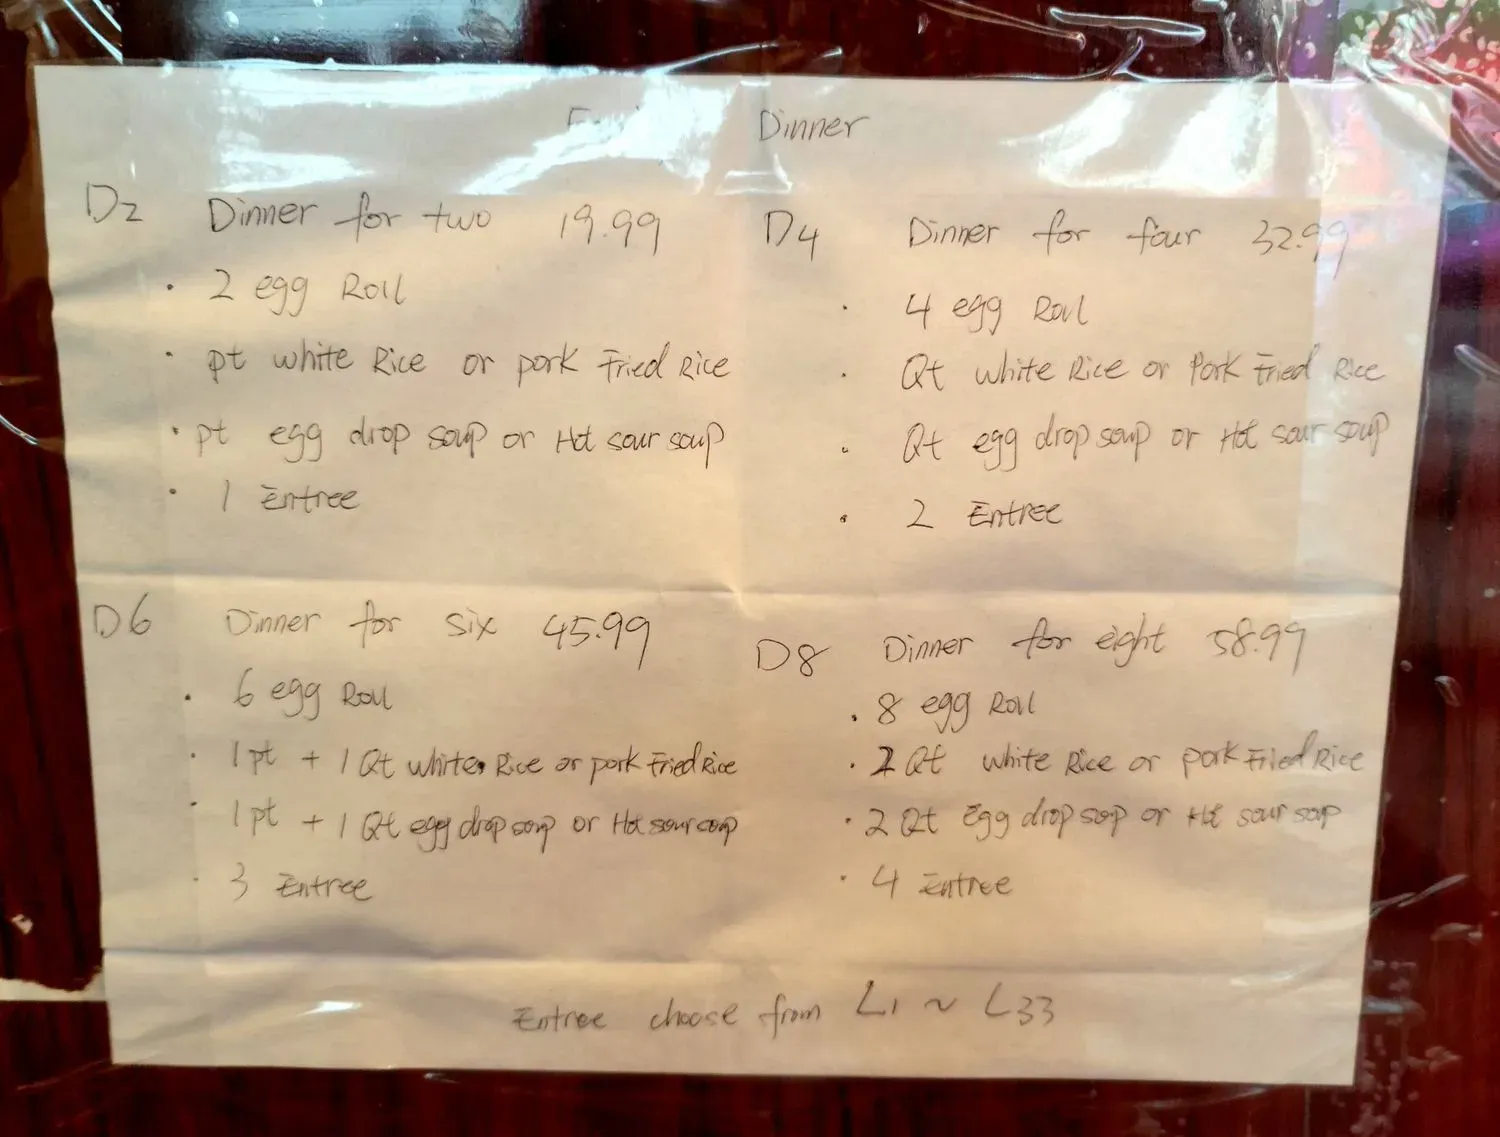 Dinner
D2 Dinner for two 19.99
• 2 egg Roll
• pt white Rice or pork Fried Rice
• pt egg drop soup or Hot sour soup
• 1 Entree
D4 Dinner for four 32.99
• 4 egg Roll
• Qt white Rice or Pork Fried Rice
• Qt egg drop soup or Hot sour soup
• 2 Entree
D6 Dinner for six 45.99
• 6 egg Roll
• 1 pt + 1 Qt white Rice or pork Fried Rice
• 1 pt + 1 Qt egg drop soup or Hot sour soup
• 3 Entree
D8 Dinner for eight 58.99
• 8 egg Roll
• 2 Qt white Rice or pork Fried Rice
• 2 Qt Egg drop soup or Hot sour soup
• 4 Entree
Entree choose from L1 ~ L33